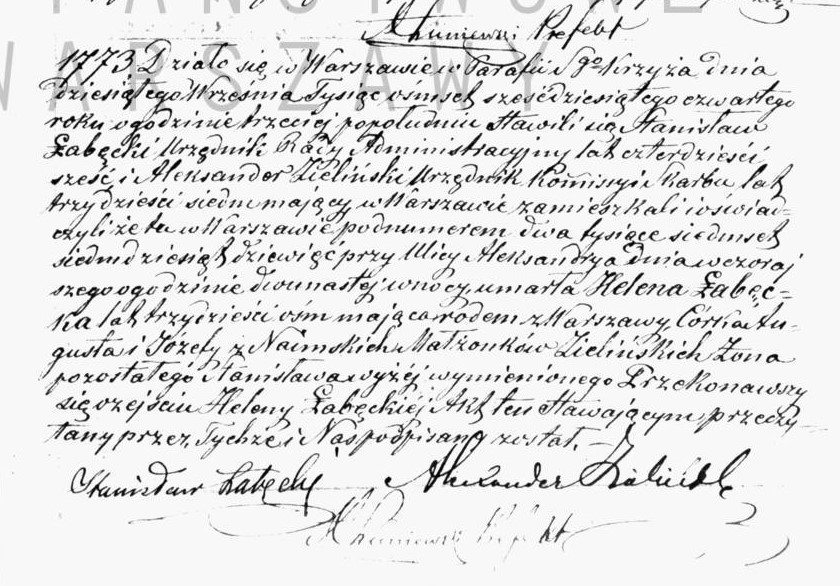 PAŃSTWOWE
WARSZAWY
Prefekt
1773 Działo się w Warszawie w Parafii Sgo Krzyża dnia
dziesiątego Września tysiąc ośmset sześćdziesiątego czwartego
roku o godzinie trzeciej popołudniu Stawili się Stanisław
Łabęcki Urzędnik Rady Administracyjny lat czterdzieści
sześć i Aleksander Zieliński Urzędnik Komissyi Skarbu lat
trzydzieści siedm mający w Warszawie zamieszkali i oświad=
czyli że tu w Warszawie pod numerem dwa tysiące siedmset
siedmdziesiąt dziewięć przy Ulicy Aleksandrya dnia wczoraj
szego o godzinie dwunastej w nocy umarła Helena Łabęc=
ka lat trzydzieści ośm mająca rodem z Warszawy, Córka Au=
gusta i Józefy z Naimskich Małżonków Zielińskich Żona
pozostałego Stanisława wyżej wymienionego Przekonawszy
się o zejściu Heleny Łabęckiej Akt ten Stawającym przeczy=
tany przez Tychże i Nas podpisany został.
Stanisław Łabęcki Alexander
Prefekt